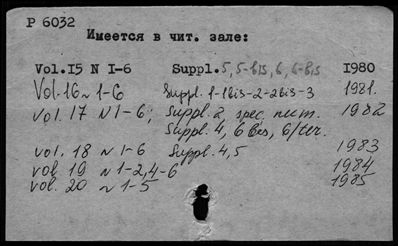 P 6032
Имеется в чит. зале:
Vol.I5 N I-6 Suppl.5,5-bis,6,6-bis I980
Vol.16 N 1-6 Suppl. 1-1bis-2-2bis-3 1981.
vol. 17 N 1-6; Suppl. 2, spec. num. 1982
Suppl. 4, 6 bis, 6/ter.
vol. 18 N 1-6 Suppl. 4,5 1983
vol 19 N 1-2,4-6 1984
vol. 20 N 1-5 1985